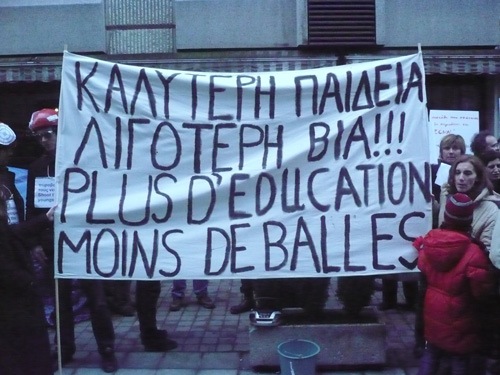 ΚΑΛΥΤΕΡΗ ΠΑΙΔΕΙΑ
ΛΙΓΟΤΕΡΗ ΒΙΑ!!!
PLUS D'EDUCATION
MOINS DE BALLES